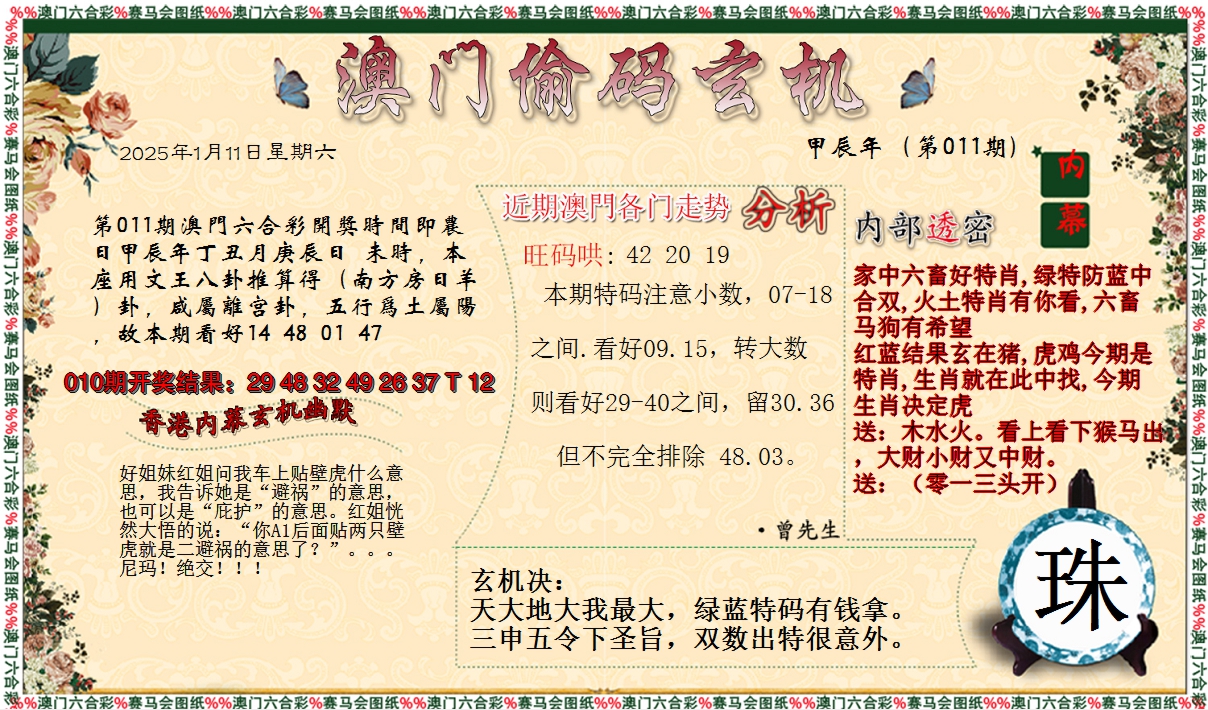 %%澳门六合彩%赛马会图纸%%澳门六合彩%赛马会图纸%%澳门六合彩%赛马会图纸%%澳门六合彩%赛马会图纸%%澳门六合彩%赛马会图纸%%澳门六合彩%赛马会图纸%%
澳门偷码玄机
2025年1月11日星期六
甲辰年（第011期）
内
幕
第011期澳門六合彩開獎時間即農
日甲辰年丁丑月庚辰日 未時，本
座用文王八卦推算得（南方房日羊
）卦，咸屬離宫卦，五行爲土屬陽
，故本期看好14 48 01 47
010期开奖结果：29 48 32 49 26 37 T 12
香港内幕玄机幽默
好姐妹红姐问我车上贴壁虎什么意
思，我告诉她是“避祸”的意思，
也可以是“庇护”的意思。红姐恍
然大悟的说：“你A1后面贴两只壁
虎就是二避祸的意思了？”。。。
尼玛！绝交！！！
近期澳門各门走势 分析
旺码哄: 42 20 19
本期特码注意小数，07-18
之间.看好09.15，转大数
则看好29-40之间，留30.36
但不完全排除 48.03。
·曾先生
内部透密
家中六畜好特肖,绿特防蓝中
合双,火土特肖有你看,六畜
马狗有希望
红蓝结果玄在猪,虎鸡今期是
特肖,生肖就在此中找,今期
生肖决定虎
送：木水火。看上看下猴马出
，大财小财又中财。
送：（零一三头开）
玄机决：
天大地大我最大，绿蓝特码有钱拿。
三申五令下圣旨，双数出特很意外。
珠
%%澳门六合彩%赛马会图纸%%澳门六合彩%赛马会图纸%%澳门六合彩%赛马会图纸%%澳门六合彩%赛马会图纸%%澳门六合彩%赛马会图纸%%澳门六合彩%赛马会图纸%%